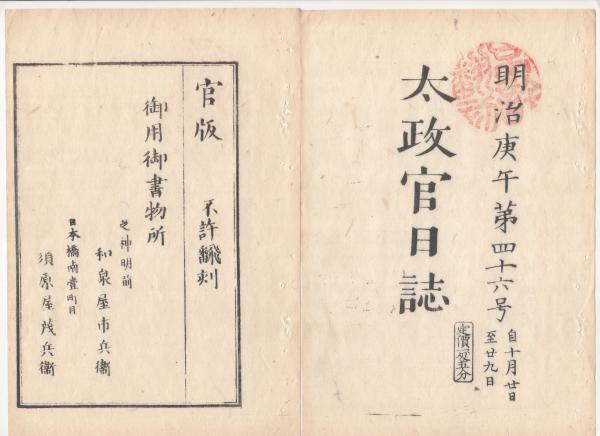 明治庚午第四十六号
自十月廿日
至廿九日
太政官日誌
官版
不許翻刻
御用御書物所
芝神明前
和泉屋市兵衞
日本橋南壹町目
須原屋茂兵衞